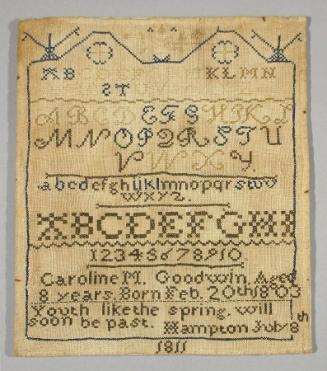 AB KLMN
ST
ABCD EFG HIKL
MNOP2RSTU
VWXY
abcdefghijklmnopqrstuv
wxyz.
ABCDEFGHI
12345678910
Caroline M. Goodwin Aged
8 years. Born Feb. 20th 1803
Youth like the spring will
soon be past. Hampton July 8th
1811